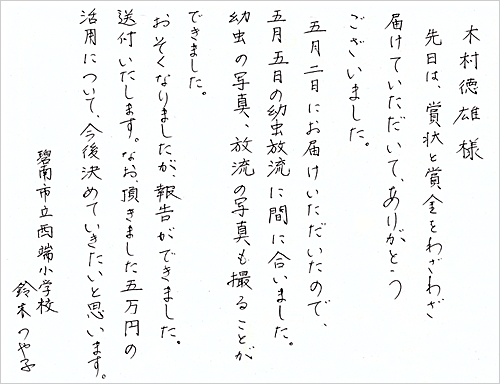 木村徳雄様
先日は、賞状と賞金をわざわざ
届けていただいて、ありがとう
ございました。
五月二日にお届けいただいたので、
五月五日の幼虫放流に間に合いました。
幼虫の写真、放流の写真も撮ることが
できました。
おそくなりましたが、報告ができました。
送付いたします。なお、頂きました五万円の
活用について、今後決めていきたいと思います。
碧南市立西端小学校
鈴木つや子